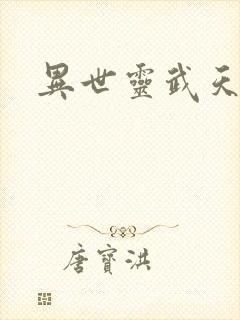 異世靈武天
唐寶洪